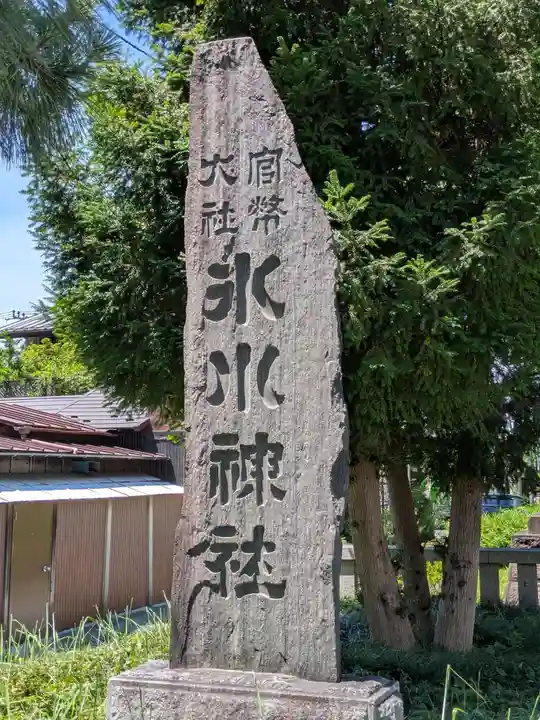 官幣
大社
氷川神社